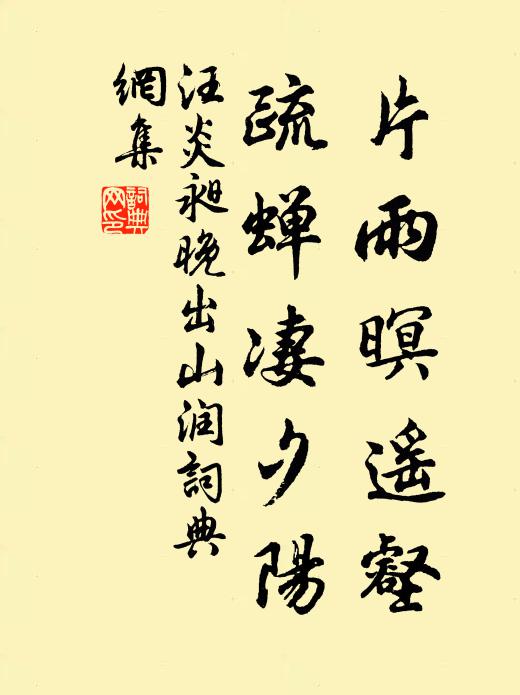 片雨暝遥壑
疏蝉凄夕陽
汪炎昶晚出山润詞典
網集
詞典網印